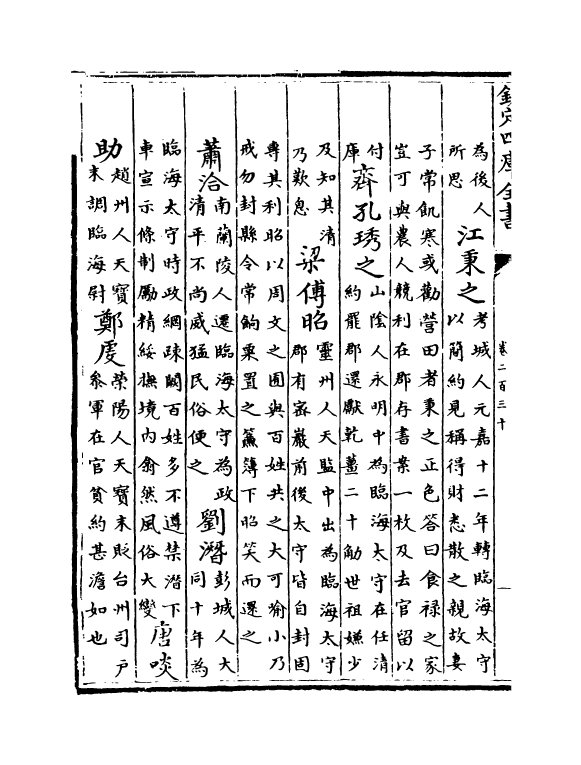 欽定四庫全書
卷二百三十
為後人
所思
江秉之
考城人元嘉十二年轉臨海太守
以簡約見稱得財悉散之親故妻
子常飢寒或勸營田者秉之正色答曰食禄之家
豈可與農人競利在郡存書案一枚及去官留以
付
庫
齊孔琇之
山陰人永明中為臨海太守在任清
約罷郡還獻乾薑二十觔世祖嫌少
及知其清
乃歎息
梁傅昭
靈州人天監中出為臨海太守
郡有宻巖前後太守皆自封固
專其利昭以周文之囿與百姓共之大可喻小乃
戒勿封縣令常餉粟置之簾簿下昭笑而還之
蕭洽
南蘭陵人遷臨海太守為政
清平不尚威猛民俗便之
劉潛
彭城人大
同十年為
臨海太守時政綱疎闕百姓多不遵禁潛下
車宣示條制勵精綏撫境内翕然風俗大變
唐啖
助
趙州人天寶
末調臨海尉
鄭䖍
榮陽人天寶末貶台州司户
參軍在官貧約甚澹如也